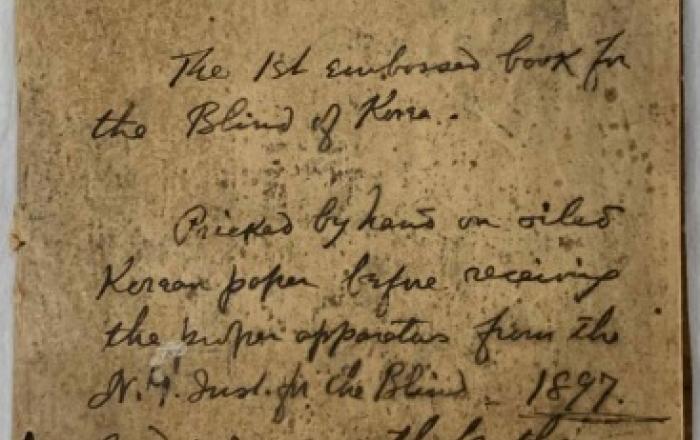 The 1st embossed book for
the Blind of Korea.
Pricked by hand on oiled
Korean paper before receiving
the proper apparatus from the
N.Y. Inst. for the Blind - 1897.